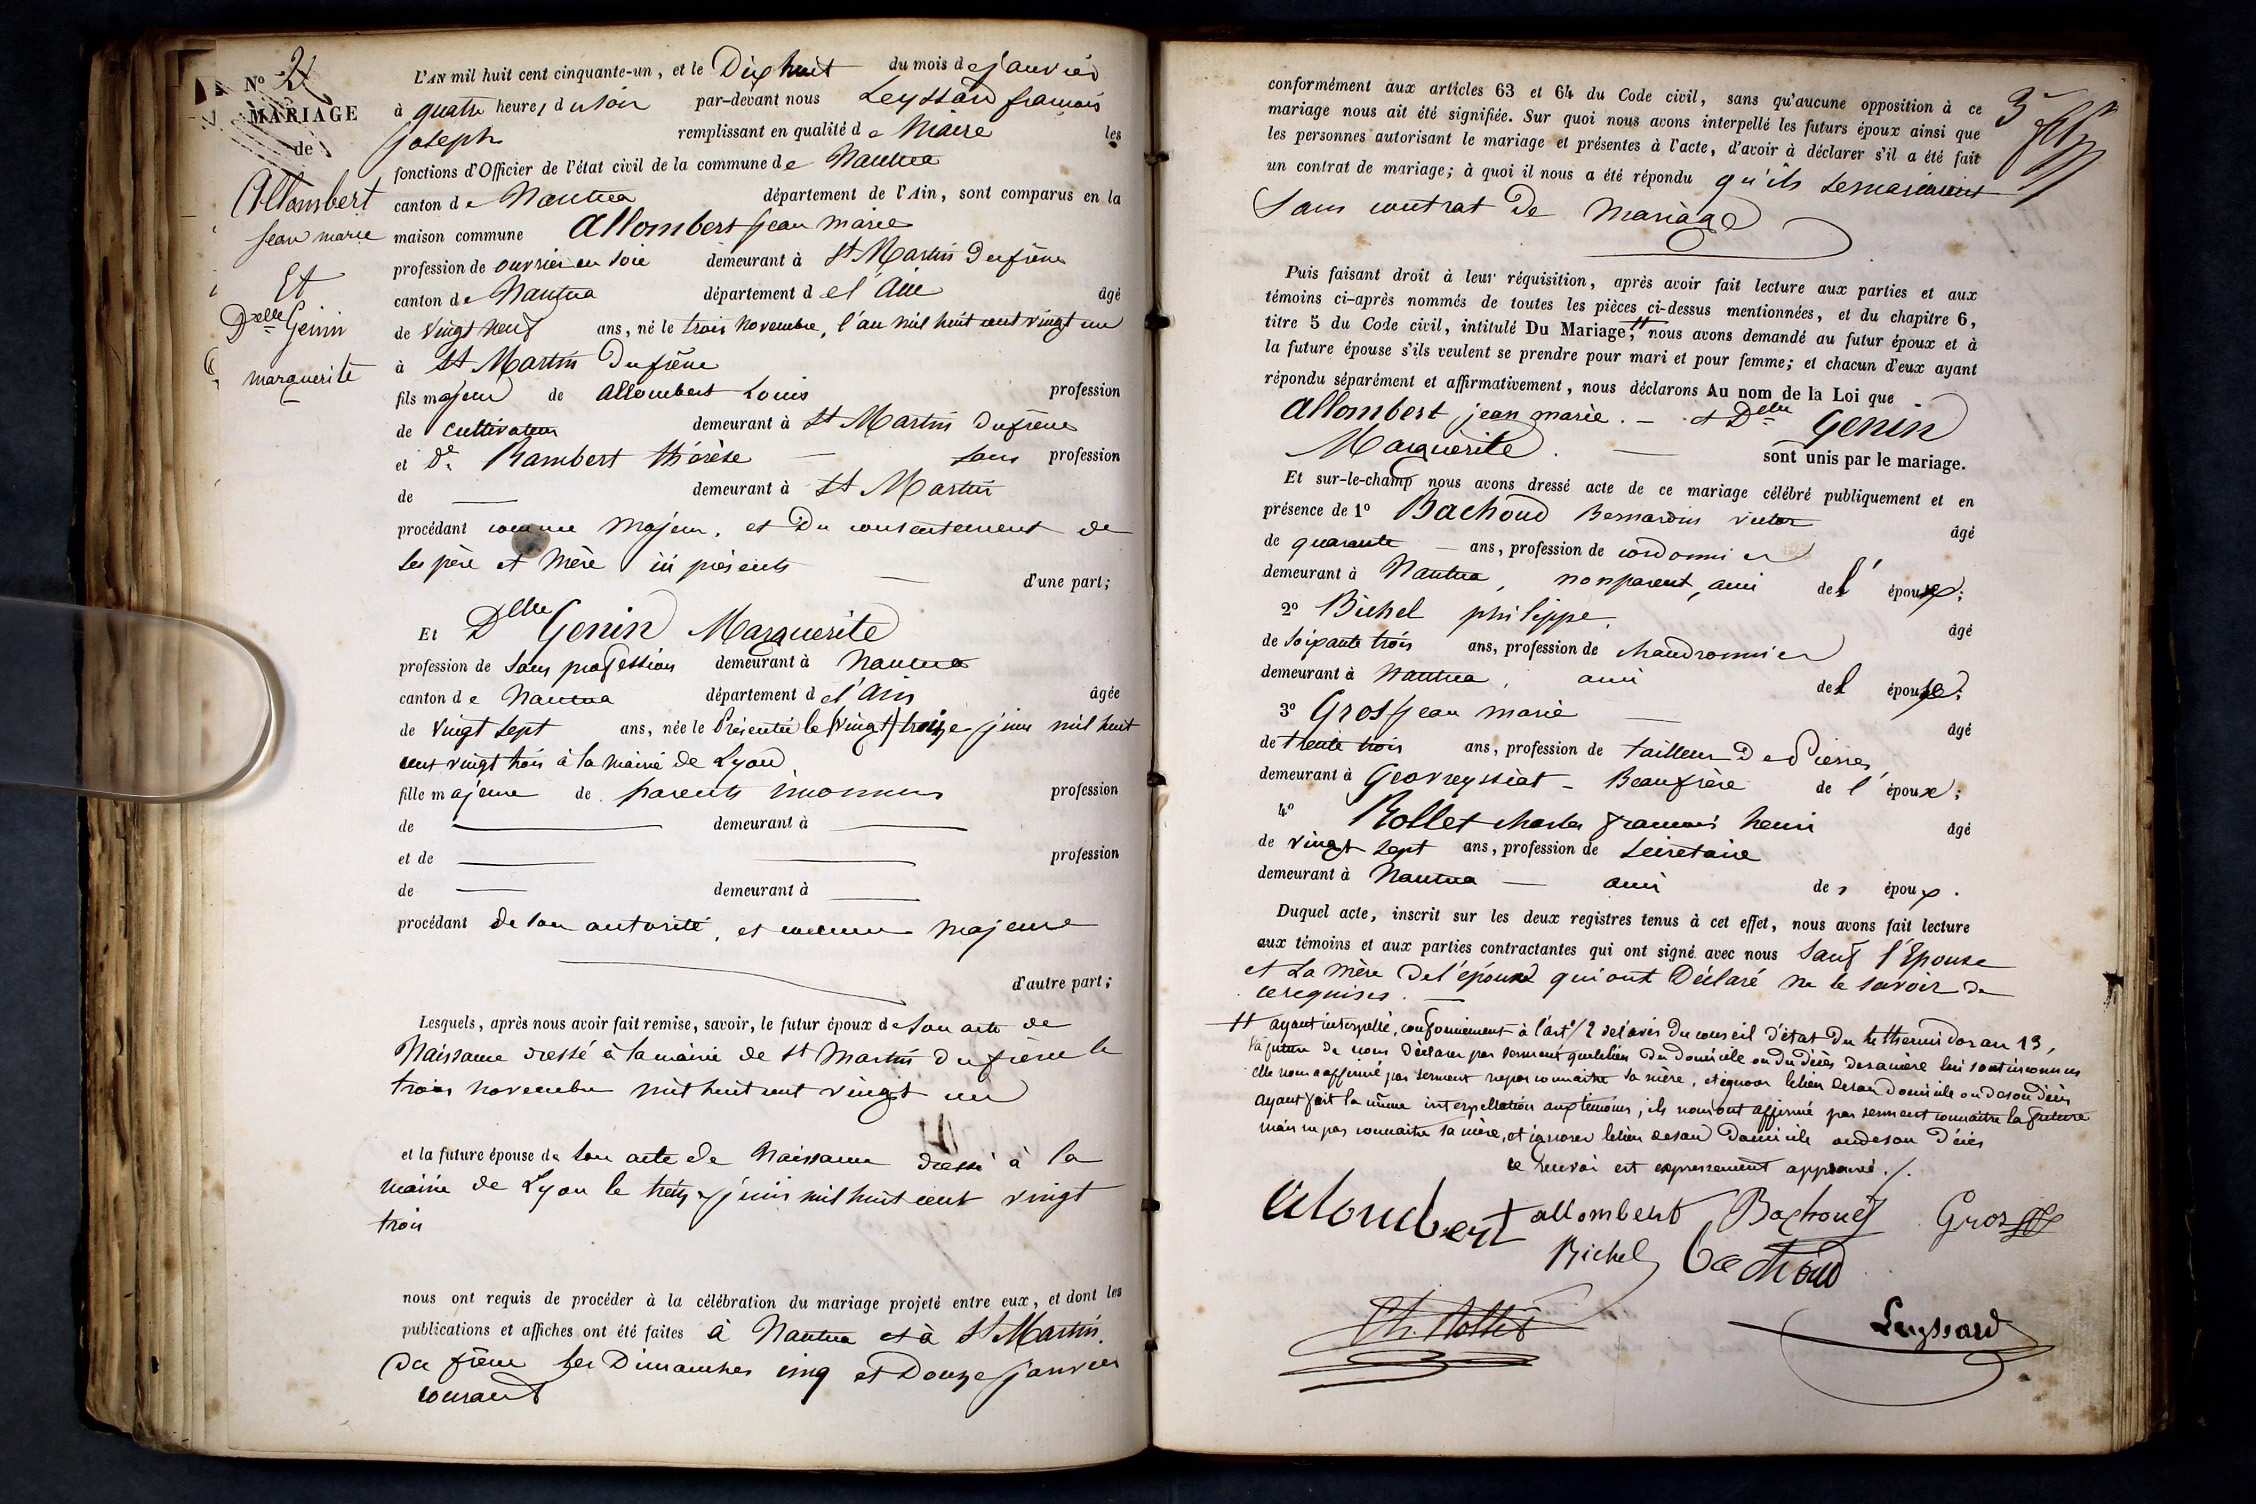 N° 2
MARIAGE
de
Allombert
Jean marie
Et
Delle Genin
marguerite
L'AN mil huit cent cinquante-un, et le Dix huit du mois de janvier
à quatre heures du soir par-devant nous Leyssard françois
joseph remplissant en qualité de Maire les
fonctions d'Officier de l'état civil de la commune de Nantua
canton de Nantua département de l'Ain, sont comparus en la
maison commune Allombert jean marie
profession de ouvrier en soie demeurant à St Martin Dufrêne
canton de Nantua département de l'Ain âgé
de vingt neuf ans, né le trois novembre, l'an mil huit cent vingt un
à St Martin Dufrêne
fils majeur de allombert Louis profession
de cultivateur demeurant à St Martin Dufrêne
et de Rambert thérèse — sans profession
de — demeurant à St Martin
procédant comme majeur, et Du consentement de
ses père et mère ici présents — d'une part;
Et Delle Genin Marguerite
profession de sans profession demeurant à Nantua
canton de Nantua département de l'Ain âgée
de vingt sept ans, née le Présentée le vingt treize juin mil huit
cent vingt trois à la mairie de Lyon
fille majeure de parents inconnus profession
de — demeurant à —
et de — — profession
de — demeurant à —
procédant de son autorité, et comme majeure
d'autre part;
Lesquels, après nous avoir fait remise, savoir, le futur époux de son acte de
Naissance dressé à la mairie de St Martin du frêne le
trois novembre mil huit cent vingt un
et la future épouse de son acte de Naissance dressé à la
mairie de Lyon le treize juin mil huit cent vingt
trois
nous ont requis de procéder à la célébration du mariage projeté entre eux, et dont les
publications et affiches ont été faites à Nantua et à St Martin
du frêne les Dimanches cinq et Douze janvier
courant
3
conformément aux articles 63 et 64 du Code civil, sans qu'aucune opposition à ce
mariage nous ait été signifiée. Sur quoi nous avons interpellé les futurs époux ainsi que
les personnes autorisant le mariage et présentes à l'acte, d'avoir à déclarer s'il a été fait
un contrat de mariage; à quoi il nous a été répondu qu'ils se mariaient
Sans contrat De mariage
Puis faisant droit à leur réquisition, après avoir fait lecture aux parties et aux
témoins ci-après nommés de toutes les pièces ci-dessus mentionnées, et du chapitre 6,
titre 5 du Code civil, intitulé Du Mariage, nous avons demandé au futur époux et à
la future épouse s'ils veulent se prendre pour mari et pour femme; et chacun d'eux ayant
répondu séparément et affirmativement, nous déclarons Au nom de la Loi que
Allombert jean marie. — et Delle Genin
Marguerite. — sont unis par le mariage.
Et sur-le-champ nous avons dressé acte de ce mariage célébré publiquement et en
présence de 1° Bachoud Bernardin victor âgé
de quarante — ans, profession de cordonnier
demeurant à Nantua, non parent, ami de l' époux;
2° Bichel philippe. âgé
de soixante trois ans, profession de chaudronnier
demeurant à Nantua, ami de l épouse;
3° Gros jean marie — âgé
de trente trois ans, profession de tailleur De Pierres,
demeurant à Geovreyssiat — Beaufrère de l époux;
4° Rollet charles françois henri âgé
de vingt sept ans, profession de secrétaire
demeurant à Nantua — ami des époux.
Duquel acte, inscrit sur les deux registres tenus à cet effet, nous avons fait lecture
aux témoins et aux parties contractantes qui ont signé avec nous sauf l'Epouse
et La mère De l'époux qui ont Déclaré ne le savoir de
ce requises. —
ayant interpellé, conformément à l'art. 2 de l'avis du conseil d'état du 4 thermidor an 13,
la future de nous Déclarer par serment que le lieu Du domicile ou du décès de sa mère lui sont inconnus
elle nous a affirmé par serment ne pas connaitre sa mère, et ignorer le lieu de son domicile ou de son décès
ayant fait la même interpellation aux témoins, ils nous ont affirmé par serment connaitre la future
mais ne pas connaitre sa mère, et ignorer le lieu de son Domicile ou de son Décès
ce renvoi est expressement approuvé./.
Alombert allombert Bachoud Gros
Bichel Bachoud
Ch. Rollet
Leyssard